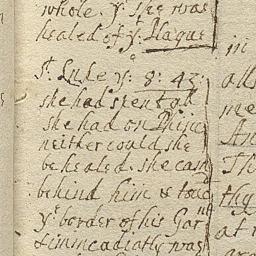 whole. yt she was
healed of yt Plague
St. Luke ye: 8: 43:
she had spent all
she had on Phisic
neither could she
be healed. she cam
behind him & touc
ye border of his Gar
& immeadiatly was
in
all
me
An
Th
thy
at